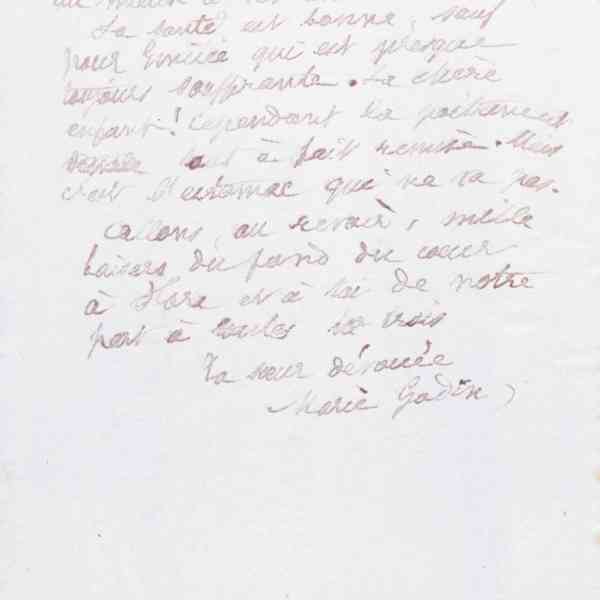 au mieux à
La santé est bonne, sauf
pour Emilie qui est presque
toujours souffrante. La chère
enfant! Cependant la poitrine est
tout à fait remise. Mais
c'est l'estomac qui ne va pas.
Callons, au revoir, mille
baisers du fond du coeur
à Flore et à toi de notre
part à toutes les trois
Ta soeur dévouée
Marie Godin